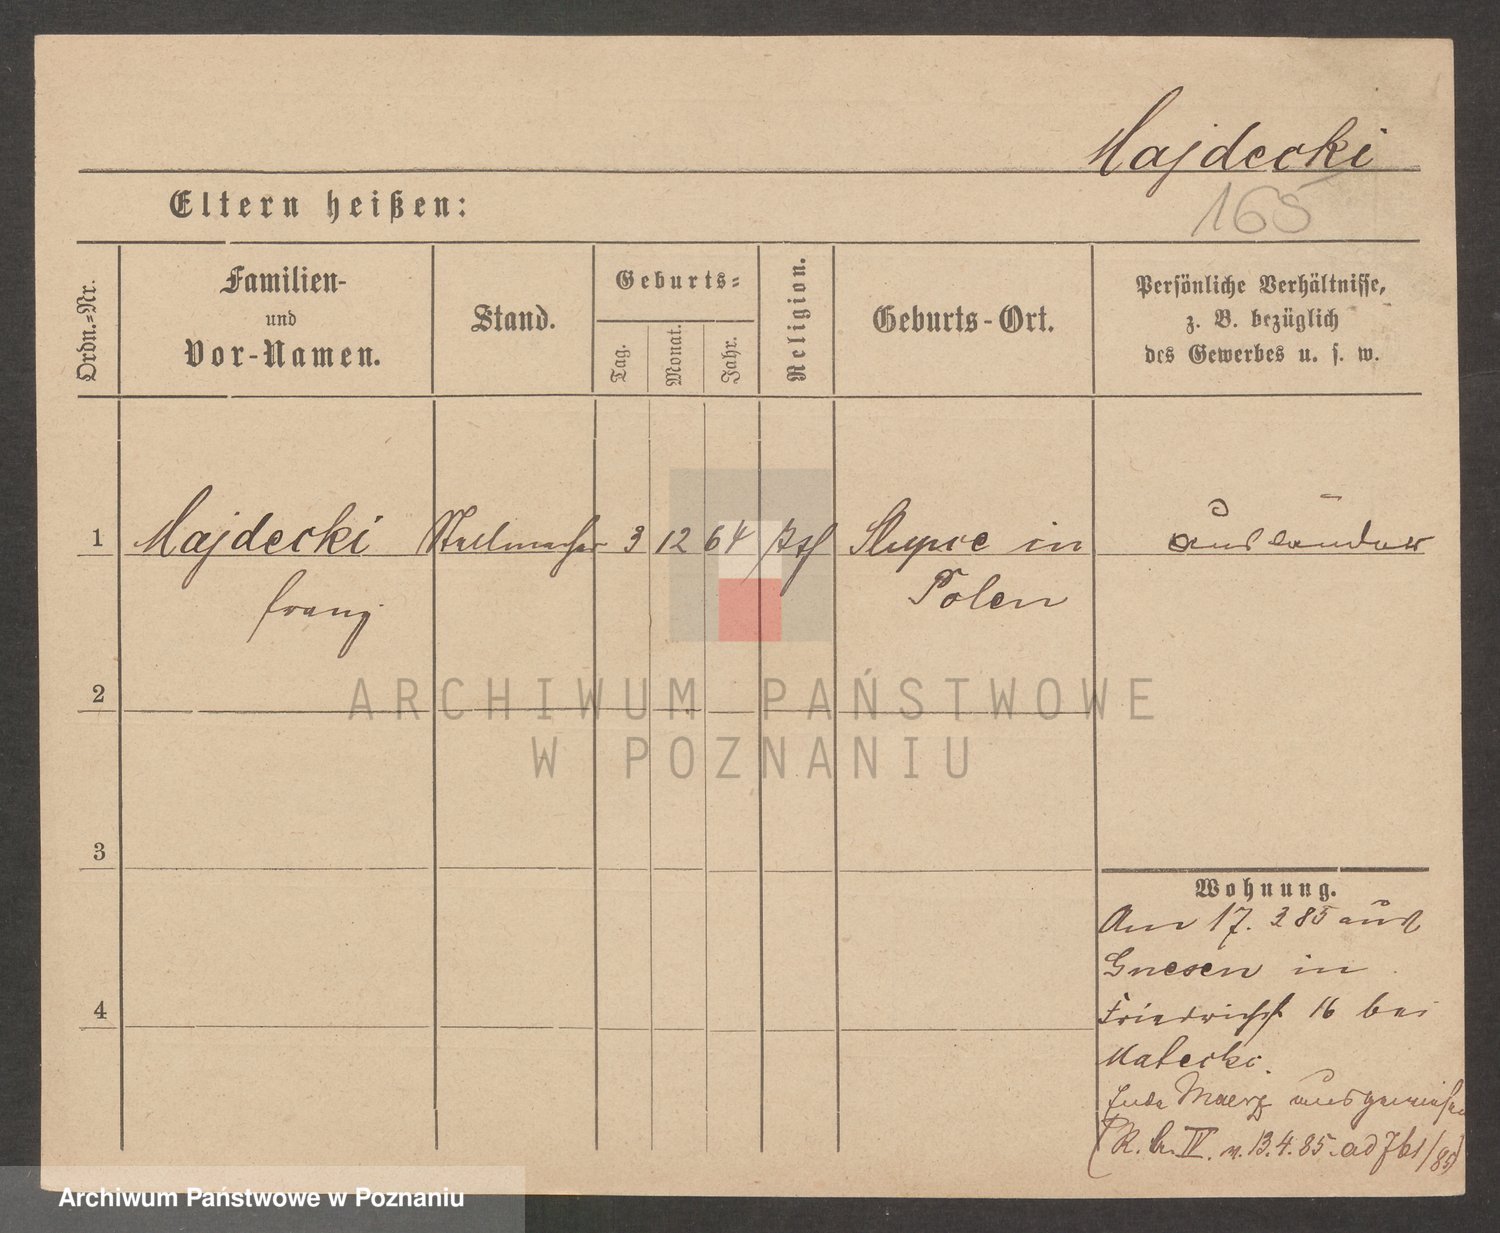 Majdecki
165
Eltern heißen:
Ordn.-Nr.
Familien-
und
Vor-Namen.
Stand.
Geburts-
Tag.
Monat.
Jahr.
Religion.
Geburts-Ort.
Persönliche Verhältnisse,
z. B. bezüglich
des Gewerbes u. s. w.
1 Majdecki Stellmacher 3 12 64 kth Slupce in Ausländer
Franz Polen
2
3
4
Wohnung.
Am 17. 3 85 aus
Gnesen in
Friedrichst 16 bei
Malecki.
Ende Maerz ausgewiesen
(R. IV. v. 13.4.85. ad 761/85)
ARCHIWUM PAŃSTWOWE
W POZNANIU
Archiwum Państwowe w Poznaniu